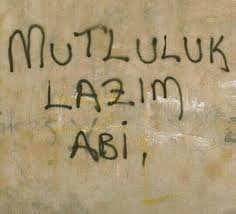 MUTLULUK
LAZIM
ABİ,